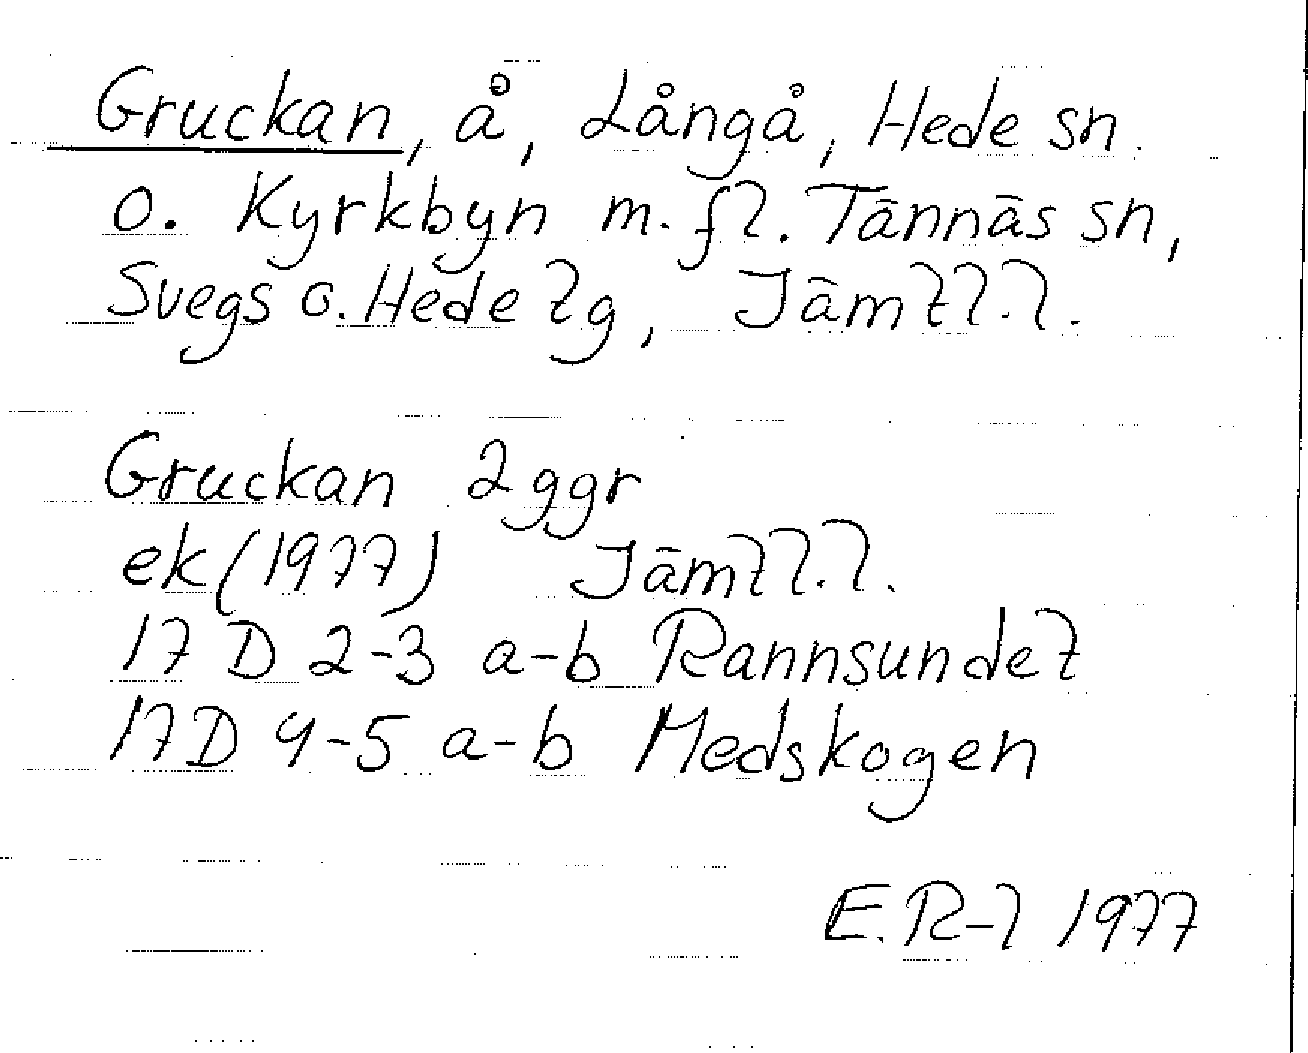 Gruckan, å, Långå, Hede sn.
o. Kyrkbyn m.fl. Tännäs sn,
Svegs o. Hede lg, Jämtl.l.
Gruckan 2 ggr
ek (1977) Jämtl.l.
17 D 2-3 a-b Rannsundet
17D 4-5 a-b Medskogen
E.R-l 1977